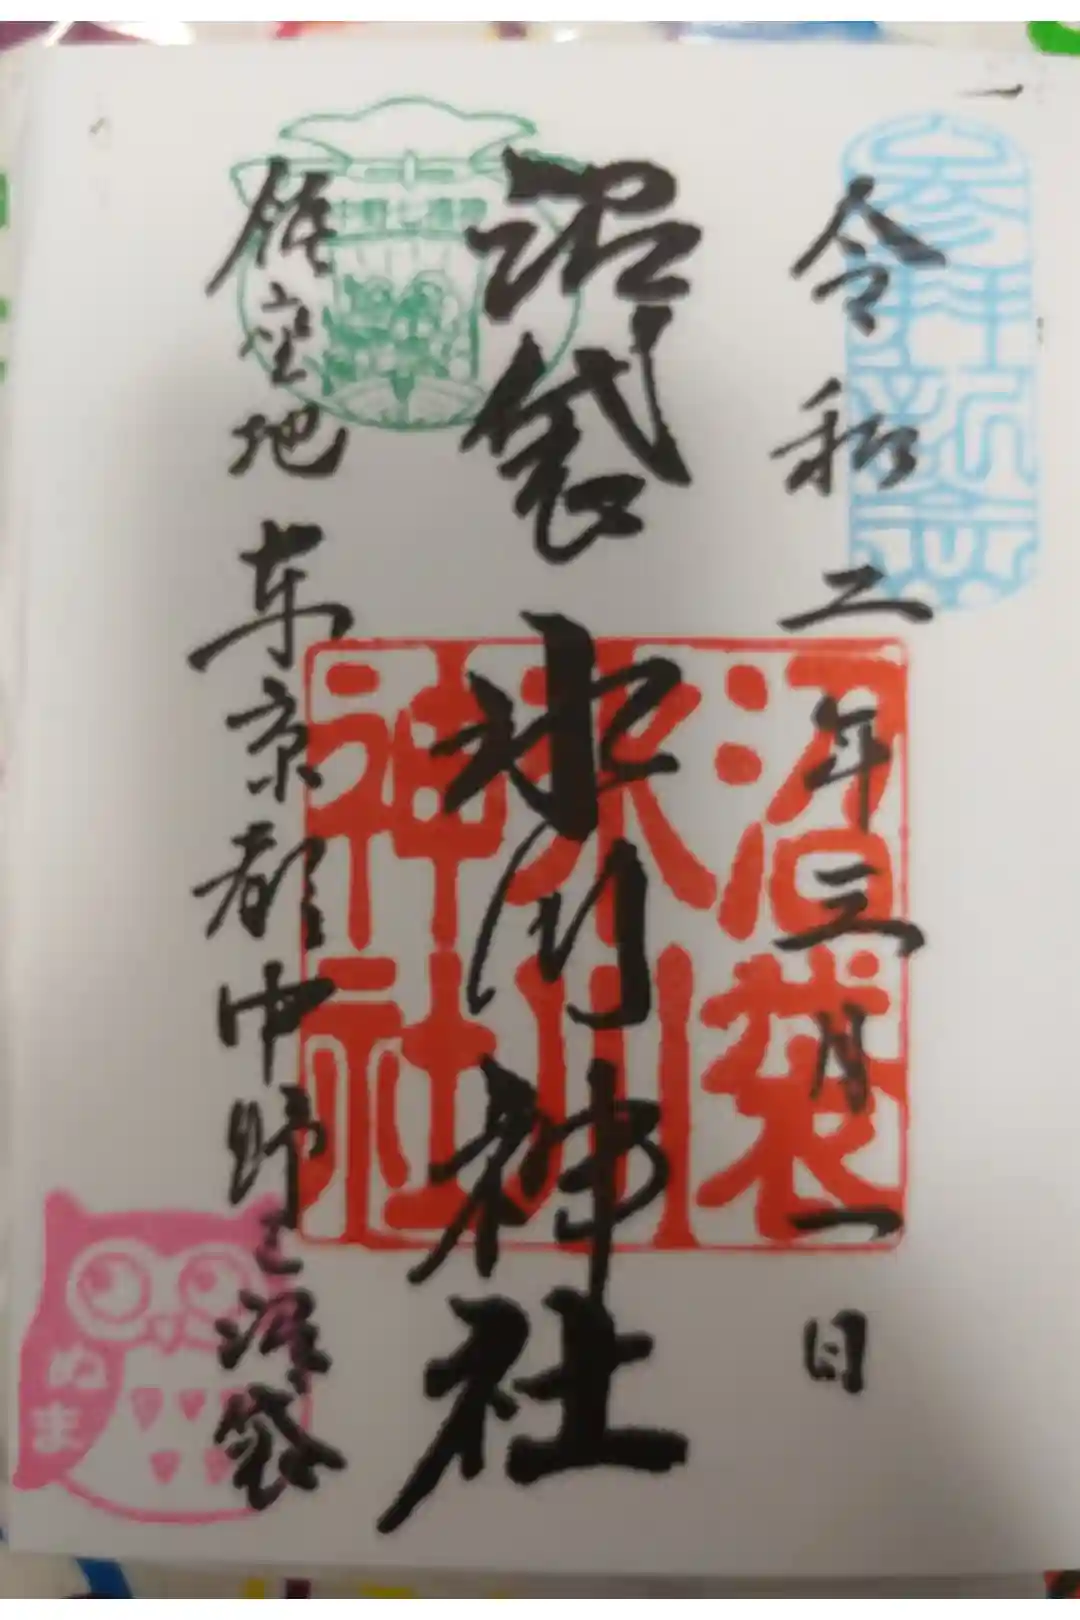 令和二年三月一日
参拝祈念
沼袋氷川神社
沼袋
氷川
神社
鎮座地 東京都中野区沼袋
ぬま